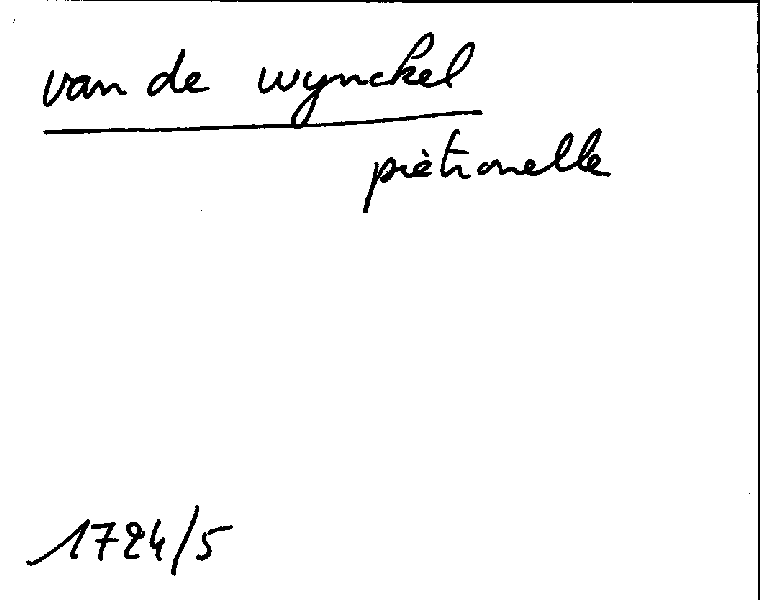 van de wynckel
piètronelle
1724/5